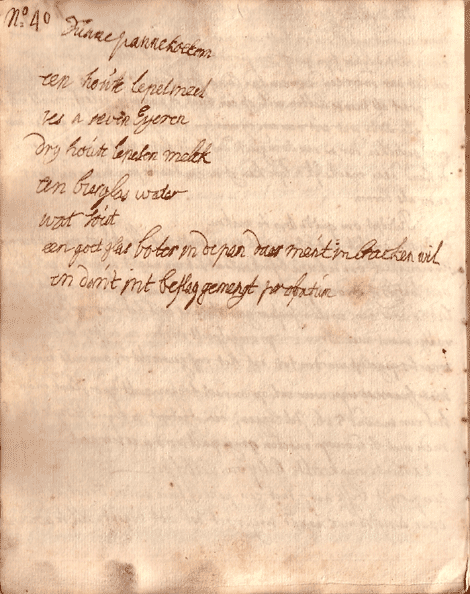 No. 40
Dunne pannekoeken
een houte lepel meel
ses a seven Eyeren
dry houte lepelen melck
een bierglas water
wat sout
een goet glas boter in de pan daer men't in backen wil
en dan't int beslag gemengt probatum